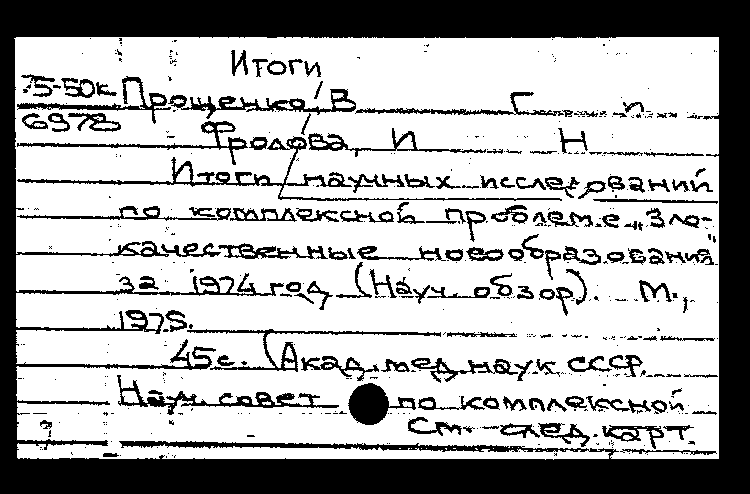 Итоги
75-50к Прощенко, В Г и
6978 Фролова, И Н
Итоги научных исследований
по комплексной проблеме „Зло-
качественные новообразования"
за 1974 год (Науч. обзор). М.,
1975.
45с. (Акад. мед. наук СССР.
Науч. совет по комплексной
См. след. карт.